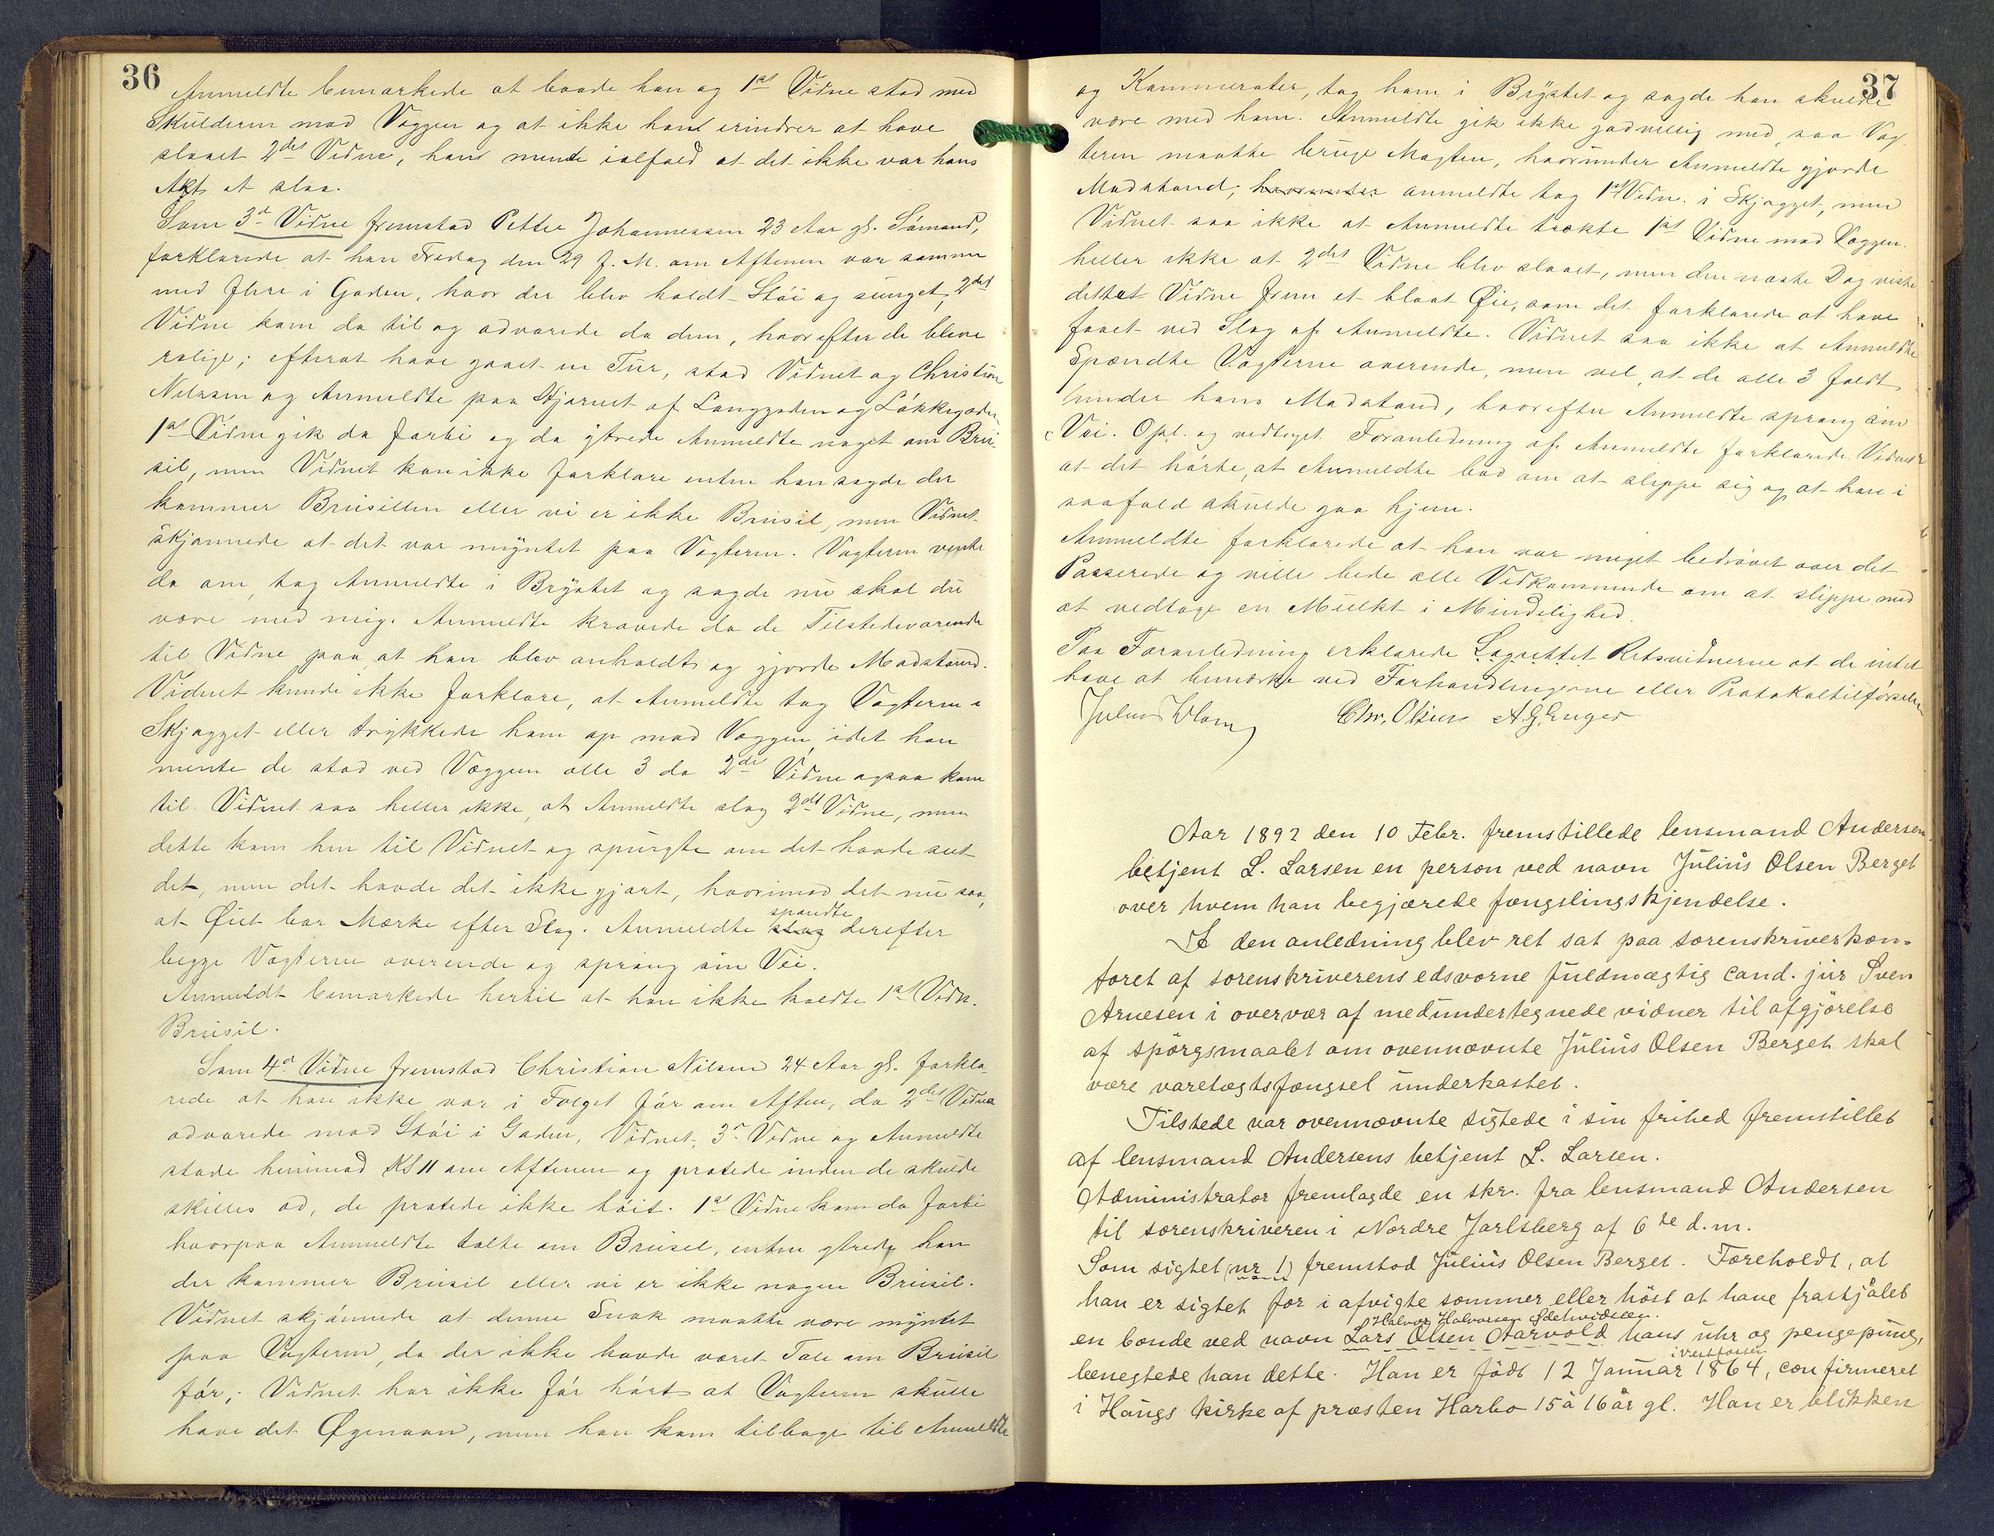 36
Anmeldte bemærkede at baade han og 1st Vidne stod mod
Skulderen mod Væggen og at ikke hans erindrer at have
slaaet 2det Vidne, hans mente ialfald at det ikke var hans
Agt at slaa.
Som 3die Vidne fremstod Petter Johannessen 23 Aar gl. Sømand,
forklarede at han Fredag den 29 f. M. om Aftenen var sammen
med flere i Gaden, hvor der blev holdt Støi og sunget, 2det
Vidne kom da til og advarede da dem, hvorefter de bleve
rolige; efterat have gaaet en Tur, stod Vidnet og Christian
Nilsen og Anmeldte paa Hjørnet af Langgaden og Løkkegaden
1st Vidne gik da forbi og da ytrede Anmeldte noget om Bru-
sil, men Vidnet kan ikke forklare enten han sagde der
kommer Brusillen eller vi er ikke Brusil, men Vidnet
skjønnede at det var myntet paa Vagteren. Vagteren vendte
da om, tog Anmeldte i Brystet og sagde nu skal du
være med mig. Anmeldte krævede da de Tilstedeværende
til Vidne paa at han blev anholdt og gjorde Modstand.
Vidnet kunde ikke forklare, at Anmeldte tog Vagteren i
Skjægget eller trykkede ham op mod Væggen, idet han
mente de stod ved Væggen alle 3 da 2det Vidne ogsaa kom
til. Vidnet saa heller ikke, at Anmeldte slog 2det Vidne, men
dette kom hen til Vidnet og spurgte om det havde seet
det, men det havde det ikke gjort, hvorimod det nu saa,
at Øiet bar Mærke efter Slag. Anmeldte slog spændte derefter
begge Vagterne overende og sprang sin Vei.
Anmeldt bemærkede hertil at han ikke kaldte 1st Vidn.
Brusil.
Som 4de Vidne fremstod Christian Nilsen 24 Aar gl. forkla-
rede at han ikke var i Følget før om Aften, da 2det Vidne
advarede mod Støi i Gaden, Vidnet, 3die Vidne og Anmeldte
stode henimod Kl 11 om Aftenen og pratede inden de skulde
skilles ad, de pratede ikke høit. 1st Vidne kom da forbi
hvorpaa Anmeldte talte om Brusil, enten ytrede han
der kommer Brusil eller vi er ikke nogen Brusil.
Vidnet skjønnede at denne Snak maatte være myntet
paa Vagteren, da der ikke havde været Tale om Brusil
før; Vidnet har ikke før hørt at Vagteren skulle
have det Øgenavn, men han kom tilbage til Anmeldte
37
og Kammerater, tog ham i Brystet og sagde han skulde
være med ham. Anmeldte gik ikke godvillig med, saa Vag-
teren maatte bruge Magten, hvorunder Anmeldte gjorde
Modstand; hvorunder anmeldte tog 1st Vidne i Skjægget, men
Vidnet saa ikke at Anmeldte trykte 1st Vidne mod Væggen.
heller ikke at 2det Vidne blev slaaet, men den næste Dag viste
dettet Vidne frem et blaat Øie, som det forklarede at have
faaet ved Slag af Anmeldte. Vidnet saa ikke at Anmeldte
Spændte Vagterne overende, men vel, at de alle 3 faldt
under hans Modstand, hvorefter Anmeldte sprang sin
Vei. Opl. og vedtaget. Foranledning af Anmeldte forklarede Vidnet
at det hørte, at Anmeldte bad om at slippe sig og at han i
saafald skulde gaa hjem.
Anmeldte forklarede at han var meget bedrøvet over det
Passerede og ville bede alle Vedkommende om at slippe med
at vedtage en Mulkt i Mindelighed.
Paa Foranledning erklærede Lagrettet Retsvidnerne at de intet
have at bemærke ved Forhandlingerne eller Protokoltilførselen
Julius Blom Chr. Olsen A G Enger
Aar 1892 den 10 Febr. fremstillede lensmand Andersens
betjent L. Larsen en person ved navn Julius Olsen Berget
over hvem han begjærede fængslingskjendelse.
I den anledning blev ret sat paa sorenskriverkon-
toret af sorenskriverens edsvorne fuldmægtig cand. jur Sven
Arnesen i overvær af medundertegnede vidner til afgjørelse
af spørgsmaalet om ovennævnte Julius Olsen Berget skal
være varetægtsfængsel underkastet.
Tilstede var ovennævnte sigtede i sin frihed fremstillet
af lensmand Andersens betjent L. Larsen.
Administrator fremlagde en skr. fra lensmand Andersen
til sorenskriveren i Nordre Jarlsberg af 6te d.m.
Som sigtet (nr 1) fremstod Julius Olsen Berget. Foreholdt, at
han er sigtet for i afvigte sommer eller høst at have frastjålet
Halvor Halvorsen
en bonde ved navn Lars Olsen Aarvold hans uhr og pengepung,
benegtede han dette. Han er født 12 Januar 1864 i Vestfossen, confirmeret
i Haugs kirke af præsten Harbo 15 à 16 år gl. Han er blikken